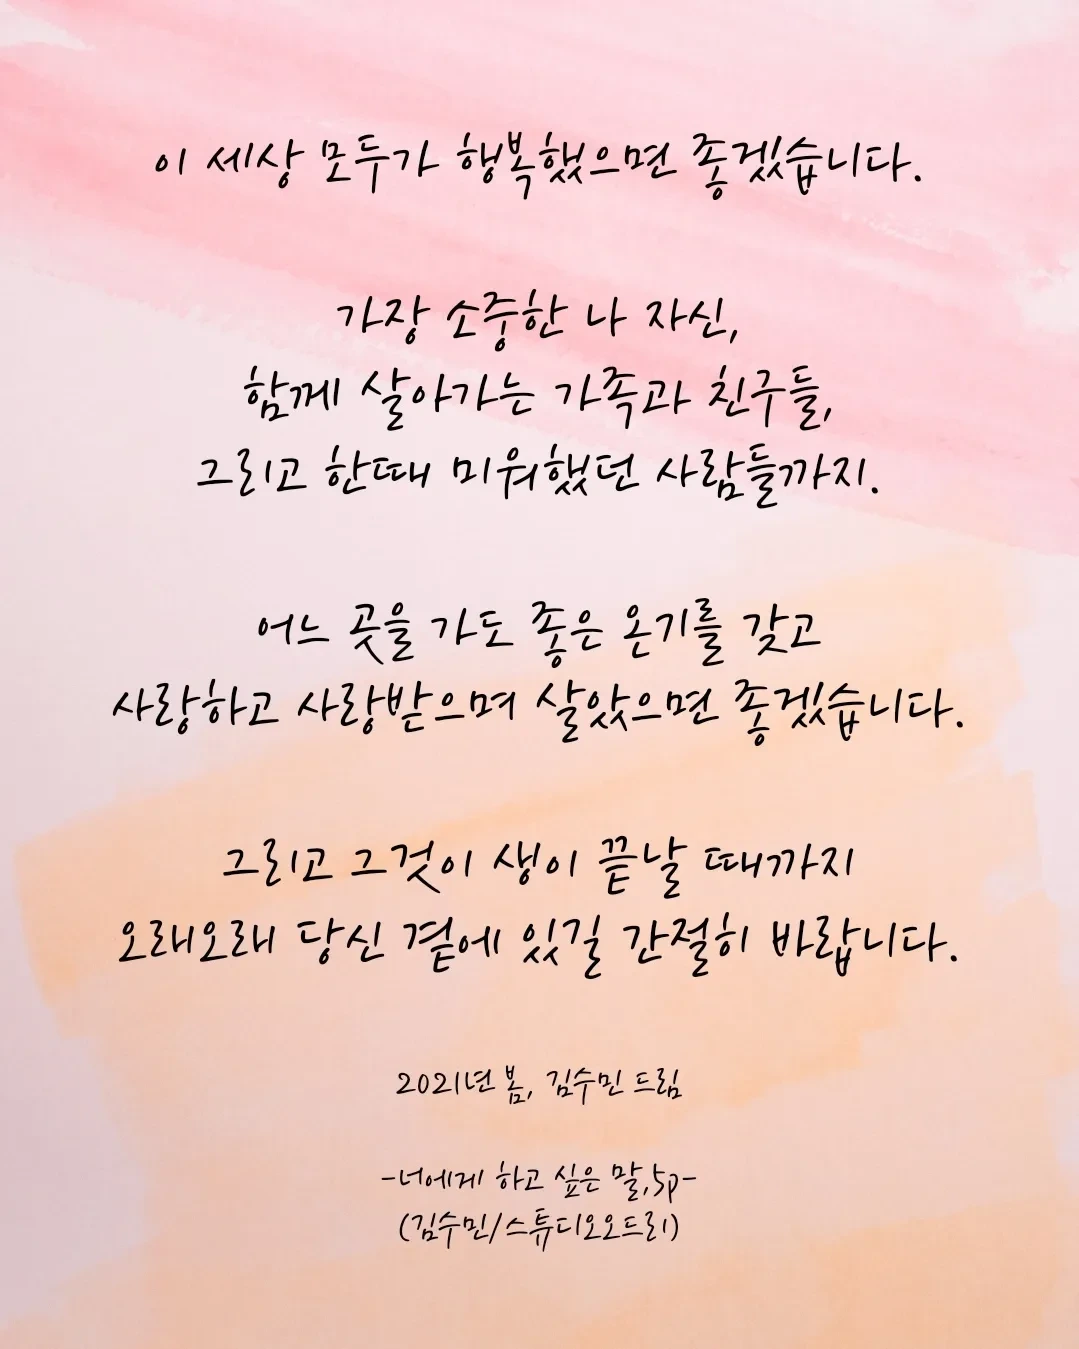 이 세상 모두가 행복했으면 좋겠습니다.
가장 소중한 나 자신,
함께 살아가는 가족과 친구들,
그리고 한때 미워했던 사람들까지.
어느 곳을 가도 좋은 온기를 갖고
사랑하고 사랑받으며 살았으면 좋겠습니다.
그리고 그것이 생이 끝날 때까지
오래오래 당신 곁에 있길 간절히 바랍니다.
2021년 봄, 김수민 드림
-너에게 하고 싶은 말,5p-
(김수민/스튜디오오드리)